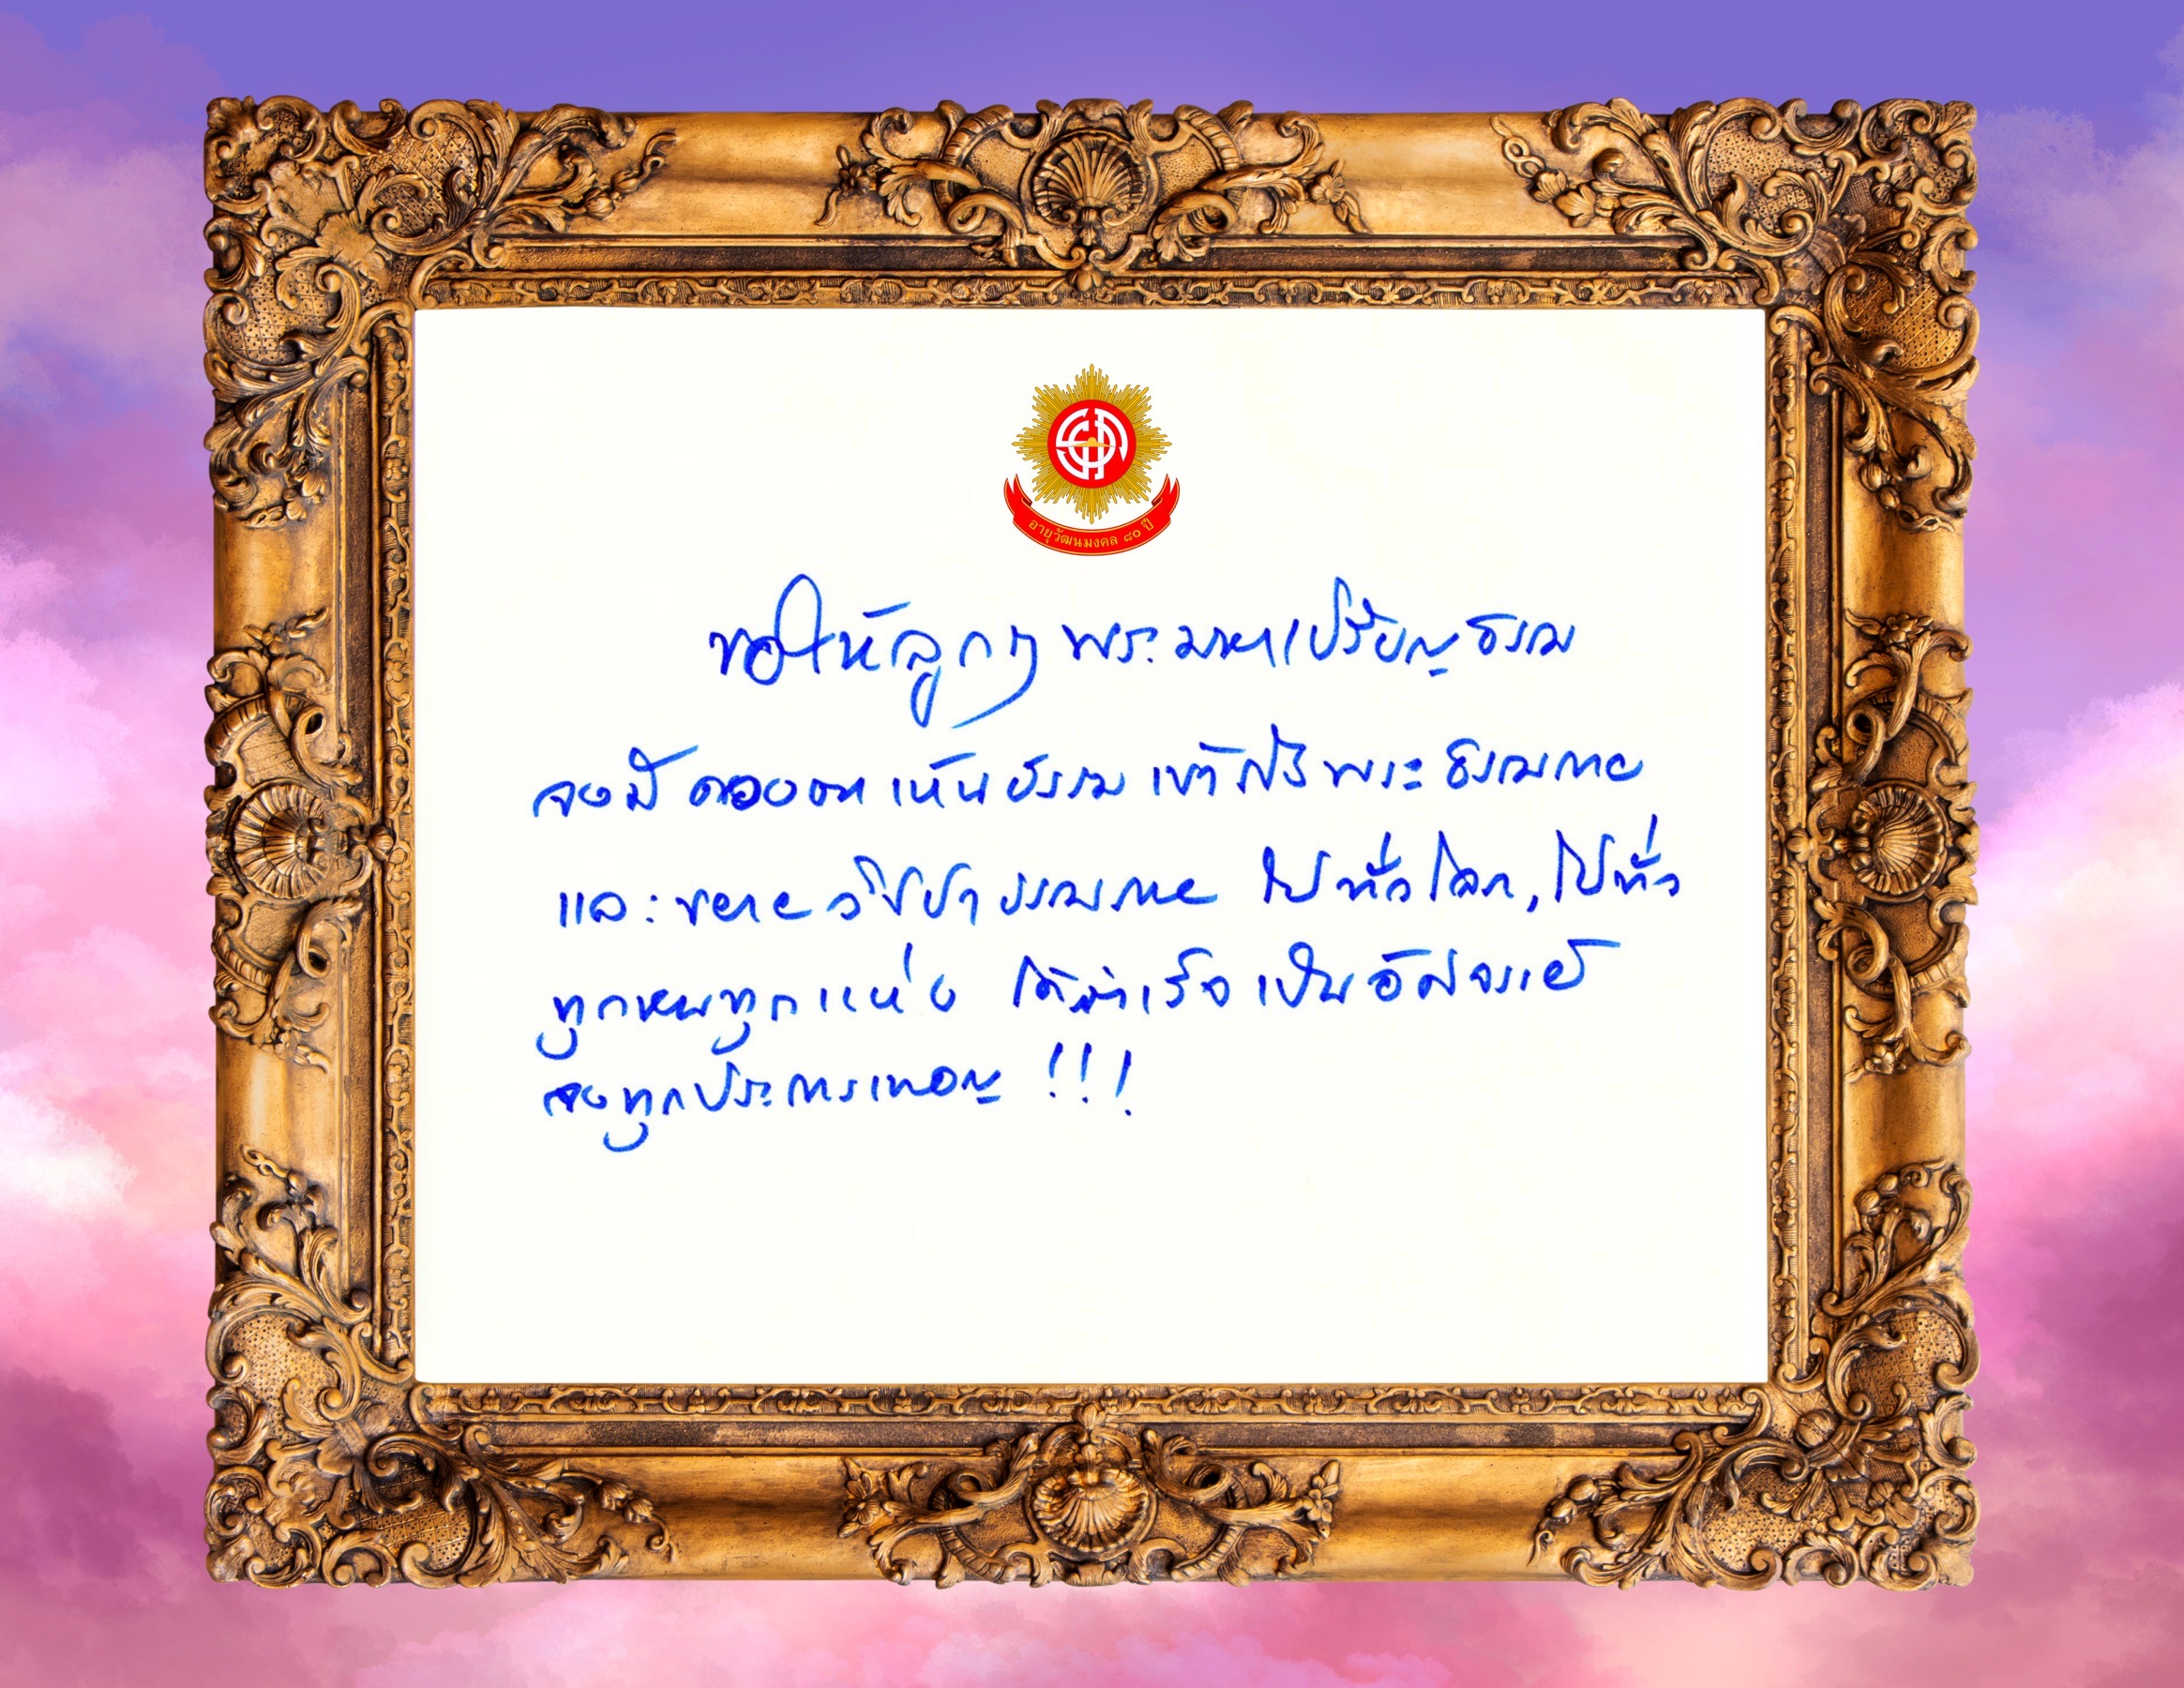 อายุวัฒนมงคล ๘๐ ปี
ขอให้ลูกๆ พระมหาเปรียญธรรม
จงมีดวงตาเห็นธรรม เข้าถึงพระธรรมกาย
และขยายวิชชาธรรมกาย ไปทั่วโลก, ไปทั่ว
ทุกหนทุกแห่ง ได้สำเร็จเป็นอัศจรรย์
จงทุกประการเทอญ !!!